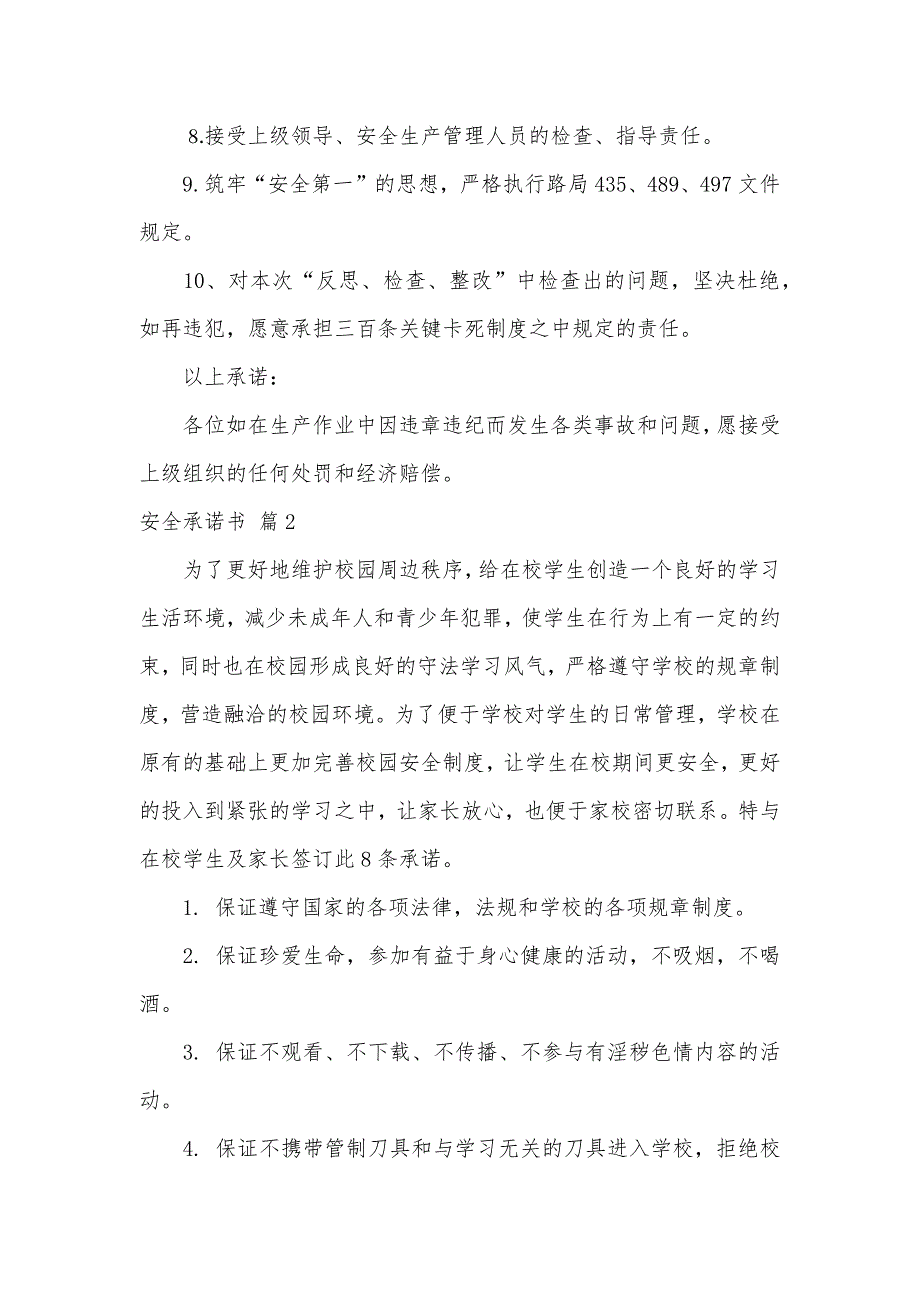 8.接受上级领导、安全生产管理人员的检查、指导责任。
9. 筑牢“安全第一”的思想，严格执行路局 435、489、497 文件
规定。
10、对本次“反思、检查、整改”中检查出的问题，坚决杜绝，
如再违犯，愿意承担三百条关键卡死制度之中规定的责任。
以上承诺：
各位如在生产作业中因违章违纪而发生各类事故和问题，愿接受
上级组织的任何处罚和经济赔偿。
安全承诺书 篇 2
为了更好地维护校园周边秩序，给在校学生创造一个良好的学习
生活环境，减少未成年人和青少年犯罪，使学生在行为上有一定的约
束，同时也在校园形成良好的守法学习风气，严格遵守学校的规章制
度，营造融洽的校园环境。为了便于学校对学生的日常管理，学校在
原有的基础上更加完善校园安全制度，让学生在校期间更安全，更好
的投入到紧张的学习之中，让家长放心，也便于家校密切联系。特与
在校学生及家长签订此 8 条承诺。
1. 保证遵守国家的各项法律，法规和学校的各项规章制度。
2. 保证珍爱生命，参加有益于身心健康的活动，不吸烟，不喝
酒。
3. 保证不观看、不下载、不传播、不参与有淫秽色情内容的活
动。
4. 保证不携带管制刀具和与学习无关的刀具进入学校，拒绝校